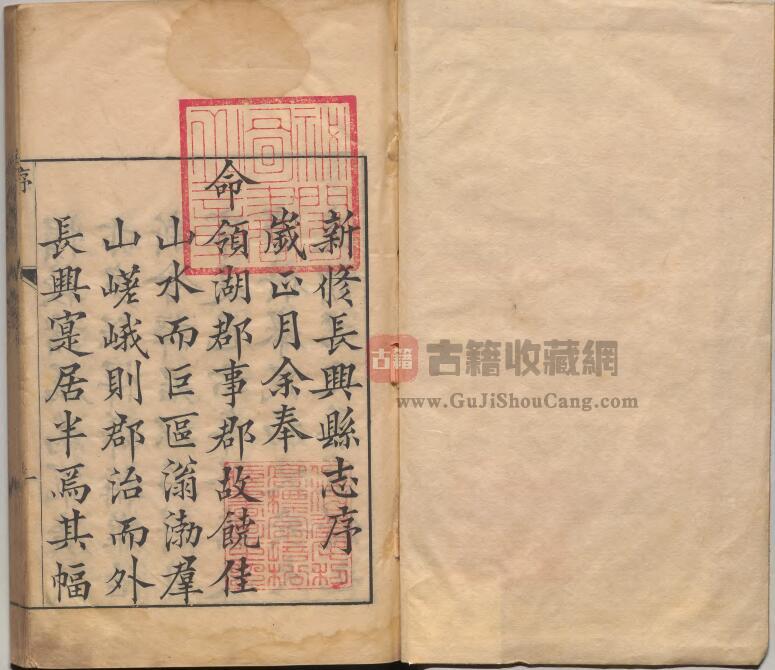 新修長興縣志序
歲正月余奉
命領湖郡事郡故饒佳
山水而巨區滃渤羣
山嵯峨則郡治而外
長興寔居半焉其幅
序
一
古籍 古籍收藏網
www.GuJiShouCang.com